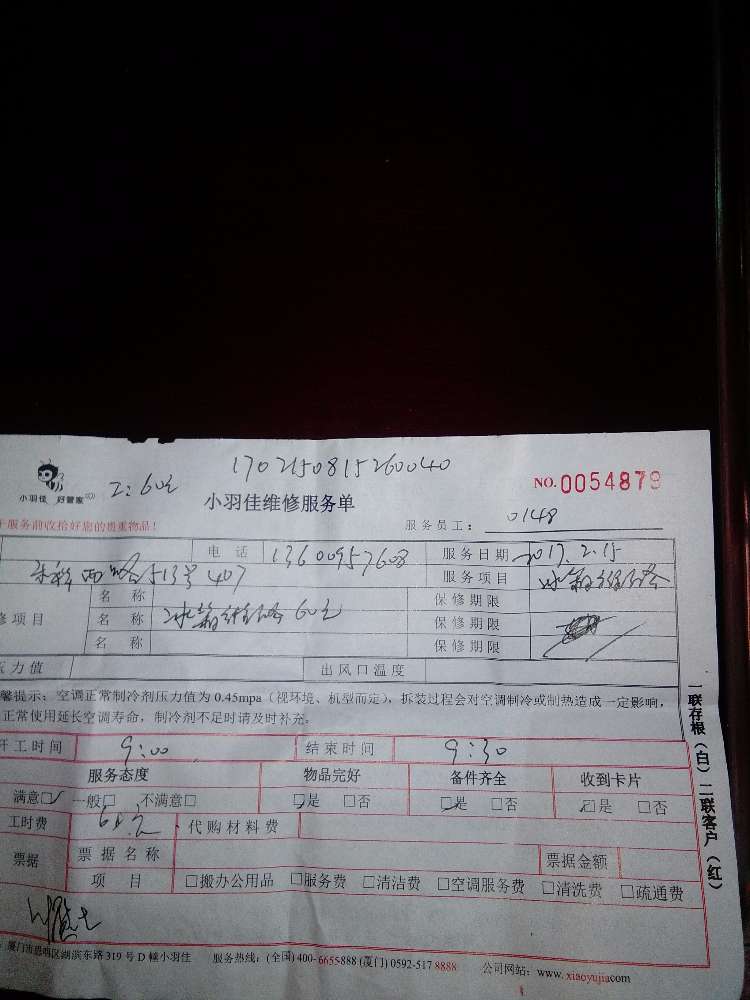 1702150815260040
小羽佳 好管家
2:60元
小羽佳维修服务单
NO.0054879
服务前收拾好您的贵重物品！
服务员工： 0148
电 话 13600957608 服务日期 2017.2.15
西路513号407 服务项目 冰箱维修
名 称 保修期限
修项目 名 称 冰箱维修60元 保修期限
名 称 保修期限
压力值 出风口温度
馨提示：空调正常制冷剂压力值为0.45mpa（视环境、机型而定），拆装过程会对空调制冷或制热造成一定影响，
正常使用延长空调寿命，制冷剂不足时请及时补充。
开工时间 9:00 结束时间 9:30
服务态度 物品完好 备件齐全 收到卡片
满意□✓ 一般□ 不满意□ □是 □否 □是 □否 □是 □否
工时费 代购材料费
票据 票据名称 票据金额
项 目 □搬办公用品 □服务费 □清洁费 □空调服务费 □清洗费 □疏通费
厦门市思明区湖滨东路319号D幢小羽佳 服务热线：(全国)400-6655-888 (厦门)0592-517 8888 公司网站：www.xiaoyujia.com
一联存根（白）二联客户（红）